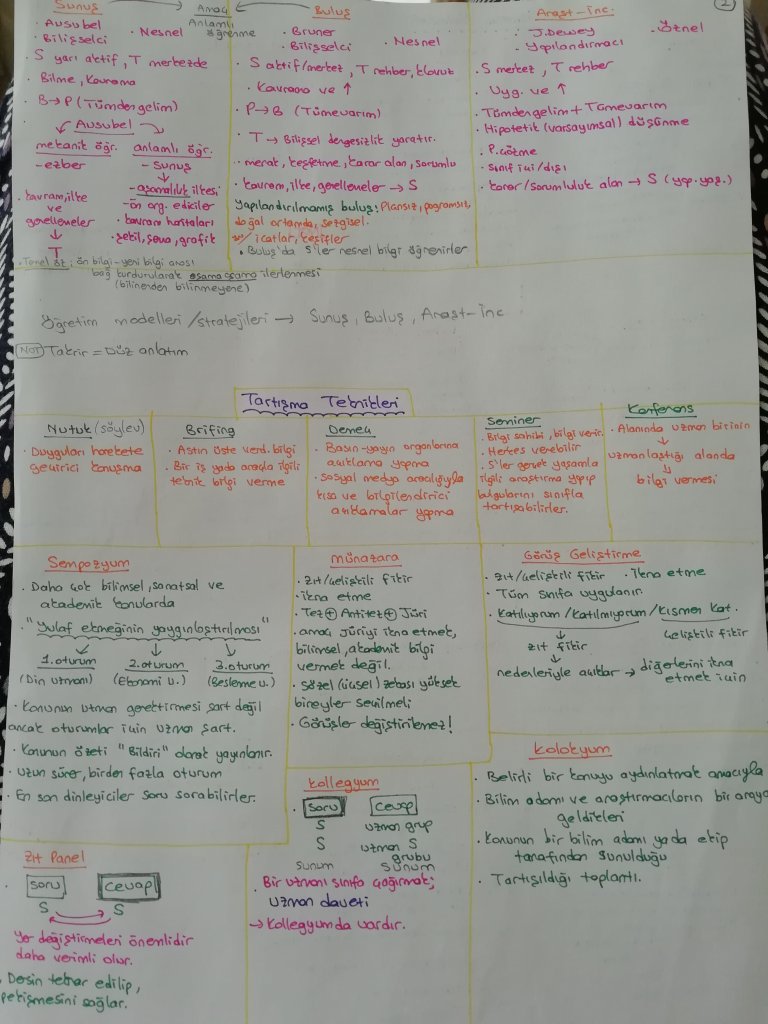 Sunuş
· Ausubel
· Bilişselci
· Nesnel
· S yarı aktif, T merkezde
· Bilme, Kavrama
· B→P (Tümdengelim)
Ausubel
mekanik öğr.
- ezber
anlamlı öğr.
- Sunuş
- aşamalılık ilkesi
- ön org. ediciler
· kavram haritaları
· şekil, şema, grafik
· kavram, ilke
ve
genellemeler
T
· Temel öz: ön bilgi - yeni bilgi arası
bağ kurdurularak aşama aşama ilerlenmesi
(bilinenden bilinmeyene)
Amaç
Anlamlı
öğrenme
Buluş
· Bruner
· Bilişselci
· Nesnel
· S aktif/merkez, T rehber, kılavuz
· Kavrama ve ↑
· P→B (Tümevarım)
· T→ Bilişsel dengesizlik yaratır.
· merak, keşfetme, karar alan, sorumlu
· kavram, ilke, genellemeler → S
Yapılandırılmamış buluş: Plansız, pogramsız,
doğal ortamda, sezgisel.
icatlar, keşifler
· Buluş'da S'ler nesnel bilgi öğrenirler
2
Araşt-inc.
· J. Dewey
· Yapılandırmacı
· Öznel
· S merkez, T rehber
· Uyg. ve ↑
· Tümdengelim + Tümevarım
· Hipotetik (varsayımsal) düşünme
· P. çözme
· Sınıf içi/dışı
· karar/sorumluluk alan → S (yap. yaş.)
Öğretim modelleri/stratejileri → Sunuş, Buluş, Araşt-inc
NOT Takrir = Düz anlatım
Tartışma Teknikleri
Nutuk (söylev)
· Duyguları harekete
geçirici konuşma
Brifing
· Astın üste verd. bilgi
· Bir iş yada araçla ilgili
teknik bilgi verme
Demeç
· Basın-yayın organlarına
açıklama yapma
· sosyal medya aracılığıyla
kısa ve bilgilendirici
açıklamalar yapma
Seminer
· Bilgi sahibi, bilgi verir.
· Herkes verebilir
· S'ler gerçek yaşamla
ilgili araştırma yapıp
bulgularını sınıfla
tartışabilirler.
Konferans
· Alanında uzman birinin
uzmanlaştığı alanda
bilgi vermesi
Sempozyum
· Daha çok bilimsel, sanatsal ve
akademik konularda
· "Yulaf ekmeğinin yaygınlaştırılması"
1.oturum
(Din uzmanı)
2.oturum
(Ekonomi u.)
3.oturum
(Besleme u.)
· Konunun uzman gerektirmesi şart değil
ancak oturumlar için uzman şart.
· Konunun özeti "Bildiri" olarak yayınlanır.
· Uzun sürer, birden fazla oturum
· En son dinleyiciler soru sorabilirler.
Münazara
· Zıt/Çelişkili fikir
· ikna etme
· Tez + Antitez + Jüri
· amaç jüriyi ikna etmek,
bilimsel, akademik bilgi
vermek değil.
· sözel (içsel) zekası yüksek
bireyler seçilmeli
· Görüşler değiştirilemez!
Görüş Geliştirme
· Zıt/Çelişkili fikir · ikna etme
· Tüm sınıfa uygulanır
· Katılıyorum/Katılmıyorum/Kısmen Kat.
zıt fikir
çelişkili fikir
nedenleriyle açıklar → diğerlerini ikna
etmek için
Zıt Panel
Soru
Cevap
S
S
Yer değiştirmeleri önemlidir
daha verimli olur.
· Dersin tekrar edilip,
pekişmesini sağlar.
Kollegyum
Soru
Cevap
S
uzman grup
S
uzman S
grubu
sunum
sunum
· Bir uzmanı sınıfa çağırmak;
uzman daveti
→ kollegyumda vardır.
Kolokyum
· Belirli bir konuyu aydınlatmak amacıyla
· Bilim adamı ve araştırmacıların bir araya
geldikleri
· Konunun bir bilim adamı ya da ekip
tarafından sunulduğu
· Tartışıldığı toplantı.